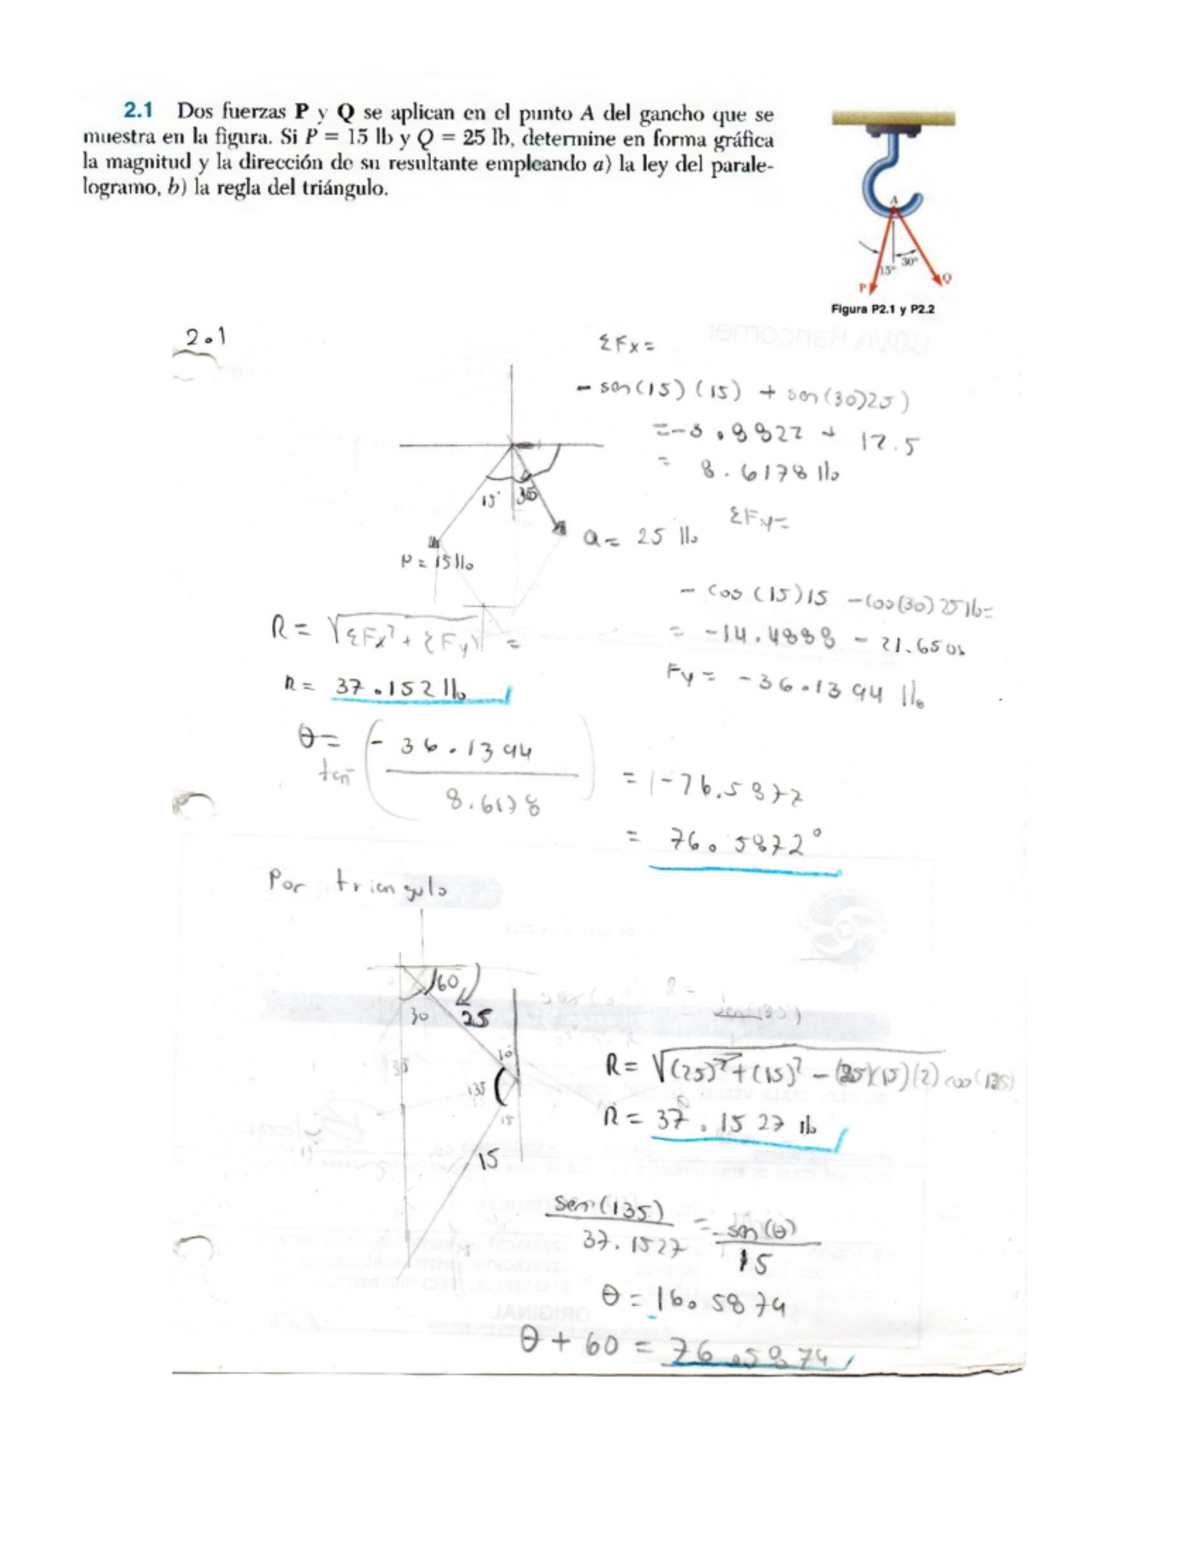 2.1 Dos fuerzas P y Q se aplican en el punto A del gancho que se
muestra en la figura. Si P = 15 lb y Q = 25 lb, determine en forma gráfica
la magnitud y la dirección de su resultante empleando a) la ley del parale-
logramo, b) la regla del triángulo.
A
15° 30°
P Q
Figura P2.1 y P2.2
2.1
ΣFx=
- sen(15)(15) + sen(30)25)
=-3.8822 + 12.5
= 8.6178 lb
15° 30
Q = 25 lb
P = 15 lb
ΣFy=
- cos(15)15 -cos(30)25lb=
= -14.4888 - 21.6506
Fy = -36.1394 lb
R = √ΣFx² + ΣFy² =
R = 37.152 lb
θ= tan⁻ (-36.1394 / 8.6178) = |-76.5872
= 76.5872°
Por triangulo
60
30 25
135
15
15
R = √(25)²+(15)² - (25)(15)(2) cos(135)
R = 37.1527 lb
sen(135) / 37.1527 = sen(θ) / 15
θ = 16.5874
θ + 60 = 76.5874
ORIGINAL